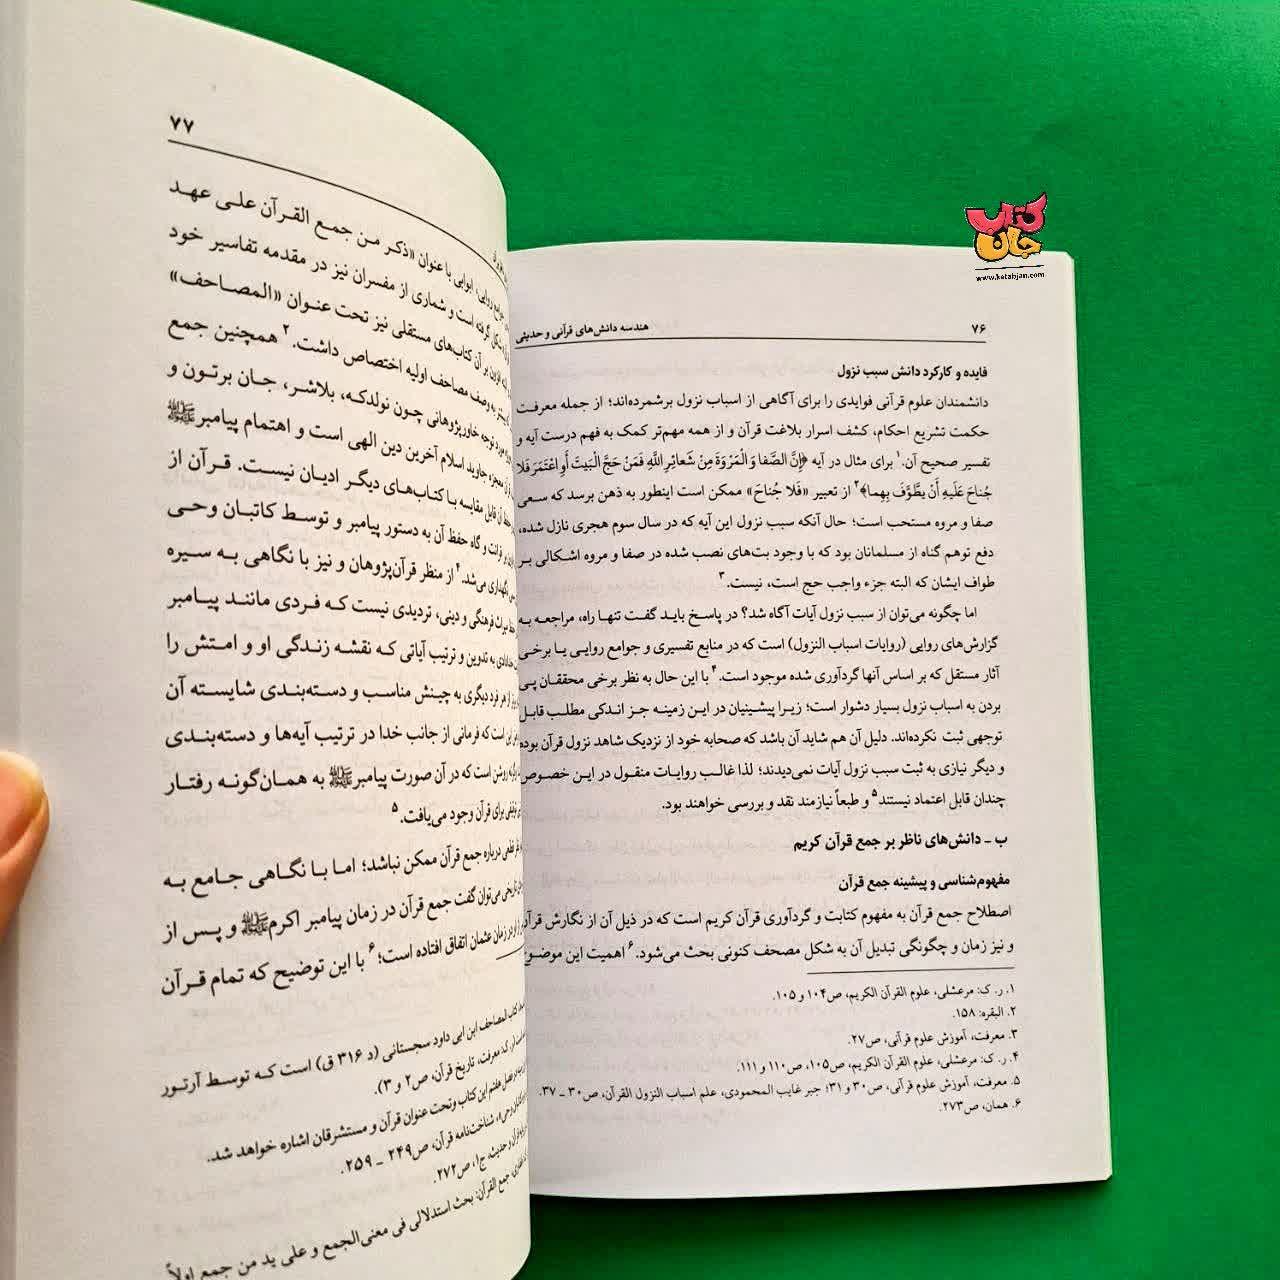 کتاب
جان
www.ketabjan.com
۷۶
هندسه دانش‌های قرآنی و حدیثی
فایده و کارکرد دانش سبب نزول
دانشمندان علوم قرآنی فوایدی را برای آگاهی از اسباب نزول برشمرده‌اند؛ از جمله معرفت
حکمت تشریع احکام، کشف اسرار بلاغت قرآن و از همه مهم‌تر کمک به فهم درست آیه و
تفسیر صحیح آن.۱ برای مثال در آیه ﴿إِنَّ الصَّفا وَ الْمَرْوَةَ مِنْ شَعائِرِ اللَّهِ فَمَنْ حَجَّ الْبَيْتَ أَوِ اعْتَمَرَ فَلا
جُناحَ عَلَيْهِ أَنْ يَطَّوَّفَ بِهِما﴾۲ از تعبیر «فَلا جُناحَ» ممکن است اینطور به ذهن برسد که سعی
صفا و مروه مستحب است؛ حال آنکه سبب نزول این آیه که در سال سوم هجری نازل شده،
دفع توهم گناه از مسلمانان بود که با وجود بت‌های نصب شده در صفا و مروه اشکالی بر
طواف ایشان که البته جزء واجب حج است، نیست.۳
اما چگونه می‌توان از سبب نزول آیات آگاه شد؟ در پاسخ باید گفت تنها راه، مراجعه به
گزارش‌های روایی (روایات اسباب النزول) است که در منابع تفسیری و جوامع روایی یا برخی
آثار مستقل که بر اساس آنها گردآوری شده موجود است.۴ با این حال به نظر برخی محققان پی
بردن به اسباب نزول بسیار دشوار است؛ زیرا پیشینیان در این زمینه جز اندکی مطلب قابل
توجهی ثبت نکرده‌اند. دلیل آن هم شاید آن باشد که صحابه خود از نزدیک شاهد نزول قرآن بوده
و دیگر نیازی به ثبت سبب نزول آیات نمی‌دیدند؛ لذا غالب روایات منقول در این خصوص
چندان قابل اعتماد نیستند۵ و طبعاً نیازمند نقد و بررسی خواهند بود.
ب ـ دانش‌های ناظر بر جمع قرآن کریم
مفهوم‌شناسی و پیشینه جمع قرآن
اصطلاح جمع قرآن به مفهوم کتابت و گردآوری قرآن کریم است که در ذیل آن از نگارش قرآن
و نیز زمان و چگونگی تبدیل آن به شکل مصحف کنونی بحث می‌شود.۶ اهمیت این موضوع
۱. ر. ک: مرعشلی، علوم القرآن الکریم، ص۱۰۴ و ۱۰۵.
۲. البقره: ۱۵۸.
۳. معرفت، آموزش علوم قرآنی، ص۲۷.
۴. ر. ک: مرعشلی، علوم القرآن الکریم، ص۱۰۵، ص۱۱۰ و ۱۱۱.
۵. معرفت، آموزش علوم قرآنی، ص۳۰ و ۳۱؛ جبر غایب المحمودی، علم اسباب النزول القرآن، ص۳۰ ـ ۳۷.
۶. همان، ص۲۷۳.
۷۷
روایی، ابوابی با عنوان «ذکر من جمع القرآن علی عهد
گرفته است و شماری از مفسران نیز در مقدمه تفاسیر خود
افزون بر آن کتاب‌های مستقلی نیز تحت عنوان «المصاحف»
به وصف مصاحف اولیه اختصاص داشت.۲ همچنین جمع
مورد توجه خاورپژوهانی چون نولدکه، بلاشر، جان برتون و
معجزه جاوید اسلام آخرین دین الهی است و اهتمام پیامبرﷺ
حفظ آن قابل مقایسه با کتاب‌های دیگر ادیان نیست. قرآن از
قرائت و گاه حفظ آن به دستور پیامبر و توسط کاتبان وحی
نگهداری می‌شد.۴ از منظر قرآن‌پژوهان و نیز با نگاهی به سیره
میراث فرهنگی و دینی، تردیدی نیست که فردی مانند پیامبر
به تدوین و ترتیب آیاتی که نقشه زندگی او و امتش را
از هر فرد دیگری به چینش مناسب و دسته‌بندی شایسته آن
این است که فرمانی از جانب خدا در ترتیب آیه‌ها و دسته‌بندی
روشن است که در آن صورت پیامبرﷺ به همان‌گونه رفتار
برای قرآن وجود می‌یافت.۵
قطعی درباره جمع قرآن ممکن نباشد؛ اما با نگاهی جامع به
تاریخی می‌توان گفت جمع قرآن در زمان پیامبر اکرمﷺ و پس از
در زمان عثمان اتفاق افتاده است؛۶ با این توضیح که تمام قرآن
کتاب المصاحف ابن ابی داود سجستانی (د ۳۱۶ ق) است که توسط آرتور
معرفت، تاریخ قرآن، ص۲ و ۳).
در فصل هفتم این کتاب و تحت عنوان قرآن و مستشرقان اشاره خواهد شد.
شناخت‌نامه قرآن، ص۲۴۹ ـ ۲۵۹.
قرآن و حدیث، ج۱، ص۲۷۲.
جمع القرآن: بحث استدلالی فی معنی‌الجمع و علی ید من جمع اولاً